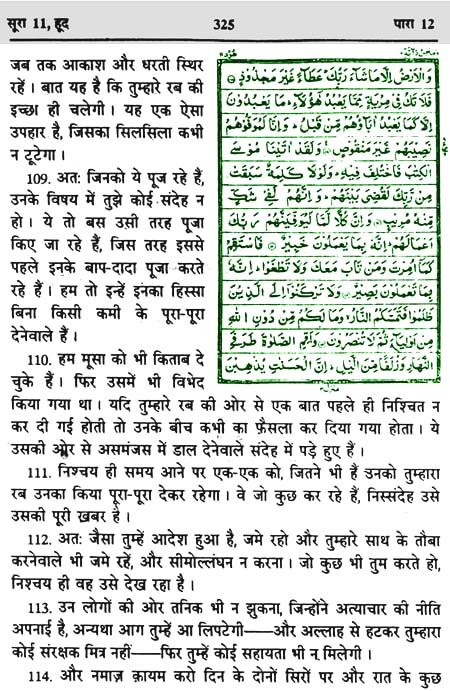 सूरा 11, हूद 325 पारा 12
जब तक आकाश और धरती स्थिर
रहें। बात यह है कि तुम्हारे रब की
इच्छा ही चलेगी। यह एक ऐसा
उपहार है, जिसका सिलसिला कभी
न टूटेगा।
109. अतः जिनको ये पूज रहे हैं,
उनके विषय में तुझे कोई संदेह न
हो। ये तो बस उसी तरह पूजा
किए जा रहे हैं, जिस तरह इससे
पहले इनके बाप-दादा पूजा करते
रहे हैं। हम तो इन्हें इनका हिस्सा
बिना किसी कमी के पूरा-पूरा
देनेवाले हैं।
110. हम मूसा को भी किताब दे
चुके हैं। फिर उसमें भी विभेद
وَالْاَرْضُ اِلَّا مَا شَآءَ رَبُّكَ عَطَآءً غَيْرَ مَجْذُوْذٍ
فَلَا تَكُ فِيْ مِرْيَةٍ مِّمَّا يَعْبُدُ هٰٓؤُلَآءِ مَا يَعْبُدُوْنَ
اِلَّا كَمَا يَعْبُدُ اٰبَآؤُهُمْ مِّنْ قَبْلُ وَاِنَّا لَمُوَفُّوْهُمْ
نَصِيْبَهُمْ غَيْرَ مَنْقُوْصٍ وَلَقَدْ اٰتَيْنَا مُوْسَى
الْكِتٰبَ فَاخْتُلِفَ فِيْهِ وَلَوْلَا كَلِمَةٌ سَبَقَتْ
مِنْ رَّبِّكَ لَقُضِيَ بَيْنَهُمْ وَاِنَّهُمْ لَفِيْ شَكٍّ
مِّنْهُ مُرِيْبٍ وَاِنَّ كُلًّا لَّمَّا لَيُوَفِّيَنَّهُمْ رَبُّكَ
اَعْمَالَهُمْ اِنَّهٗ بِمَا يَعْمَلُوْنَ خَبِيْرٌ فَاسْتَقِمْ
كَمَآ اُمِرْتَ وَمَنْ تَابَ مَعَكَ وَلَا تَطْغَوْا اِنَّهٗ
بِمَا تَعْمَلُوْنَ بَصِيْرٌ وَلَا تَرْكَنُوْٓا اِلَى الَّذِيْنَ
ظَلَمُوْا فَتَمَسَّكُمُ النَّارُ وَمَا لَكُمْ مِّنْ دُوْنِ اللّٰهِ
مِنْ اَوْلِيَآءَ ثُمَّ لَا تُنْصَرُوْنَ وَاَقِمِ الصَّلٰوةَ طَرَفَيِ
النَّهَارِ وَزُلَفًا مِّنَ الَّيْلِ اِنَّ الْحَسَنٰتِ يُذْهِبْنَ
किया गया था। यदि तुम्हारे रब की ओर से एक बात पहले ही निश्चित न
कर दी गई होती तो उनके बीच कभी का फ़ैसला कर दिया गया होता। ये
उसकी ओर से असमंजस में डाल देनेवाले संदेह में पड़े हुए हैं।
111. निश्चय ही समय आने पर एक-एक को, जितने भी हैं उनको तुम्हारा
रब उनका किया पूरा-पूरा देकर रहेगा। वे जो कुछ कर रहे हैं, निस्संदेह उसे
उसकी पूरी ख़बर है।
112. अतः जैसा तुम्हें आदेश हुआ है, जमे रहो और तुम्हारे साथ के तौबा
करनेवाले भी जमे रहें, और सीमोल्लंघन न करना। जो कुछ भी तुम करते हो,
निश्चय ही वह उसे देख रहा है।
113. उन लोगों की ओर तनिक भी न झुकना, जिन्होंने अत्याचार की नीति
अपनाई है, अन्यथा आग तुम्हें आ लिपटेगी——और अल्लाह से हटकर तुम्हारा
कोई संरक्षक मित्र नहीं——फिर तुम्हें कोई सहायता भी न मिलेगी।
114. और नमाज़ क़ायम करो दिन के दोनों सिरों पर और रात के कुछ